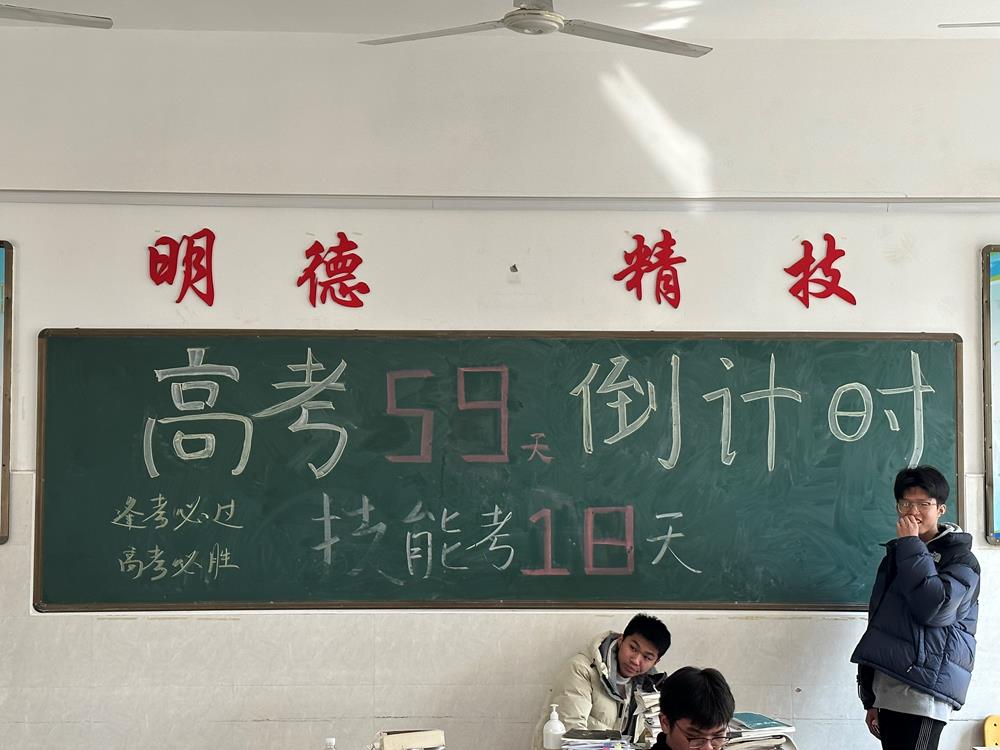 明德 精技
高考59天倒计时
逢考必过
技能考18天
高考必胜